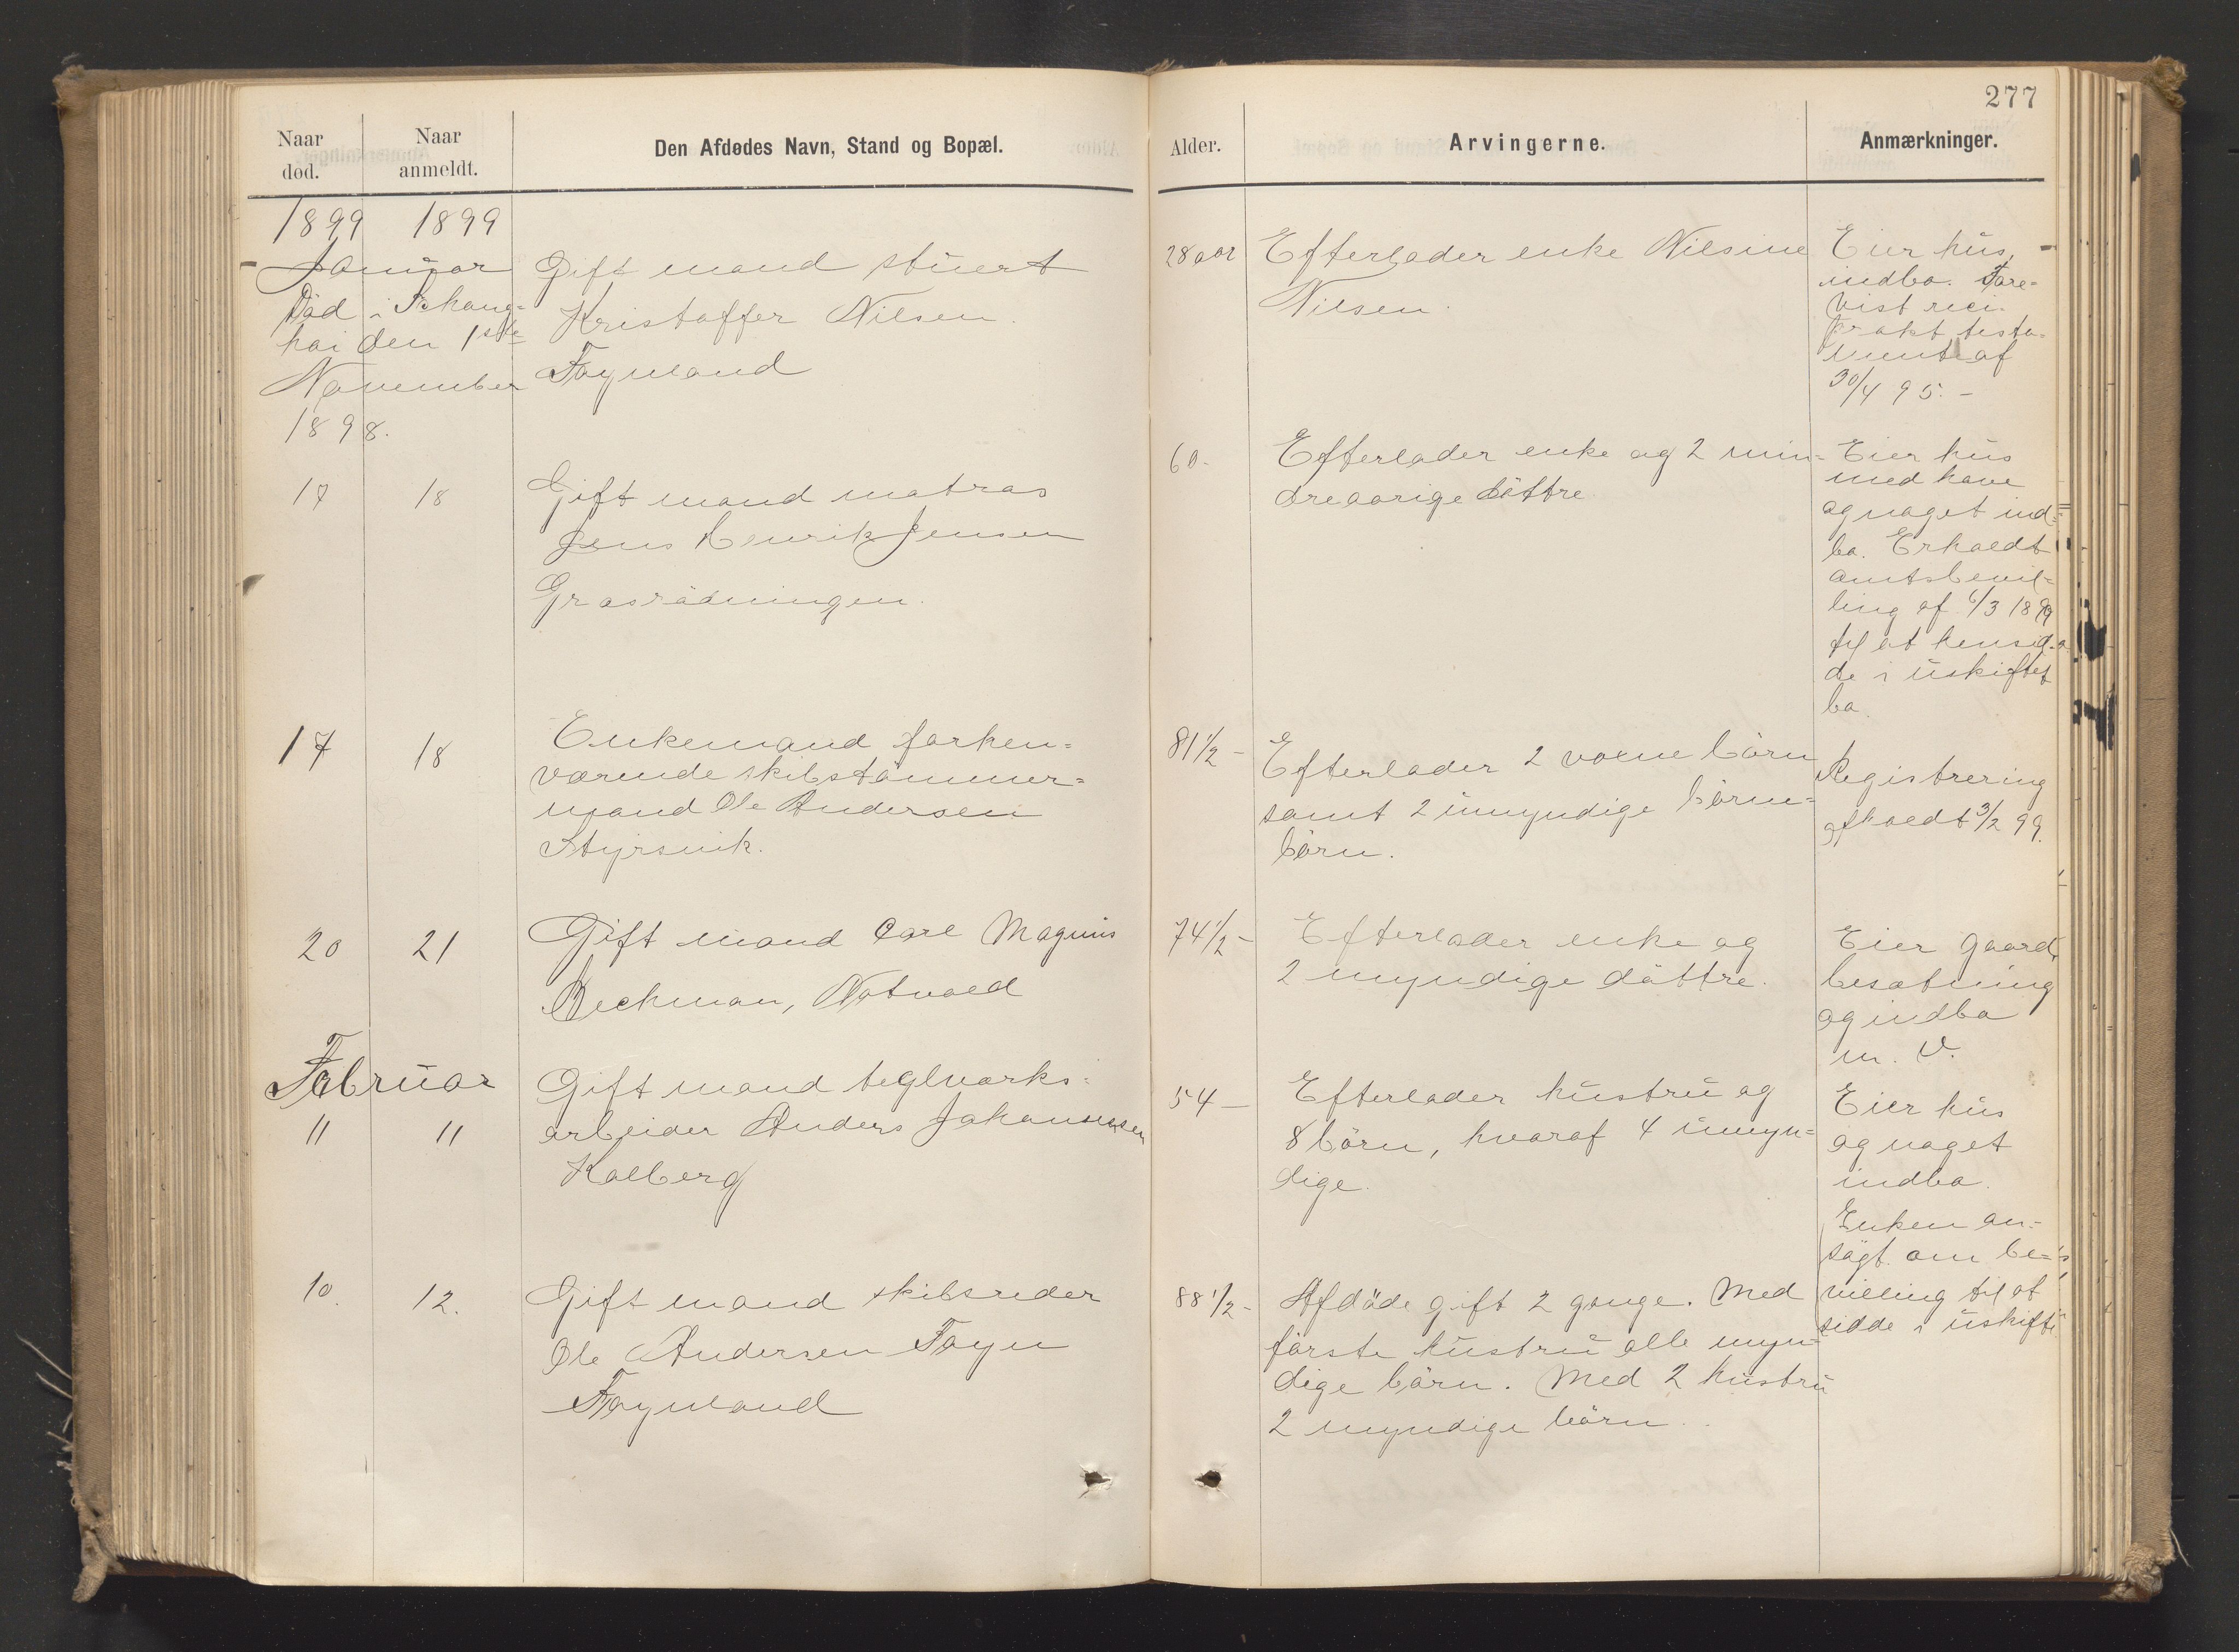 277
Naar død.
Naar anmeldt.
Den Afdødes Navn, Stand og Bopæl.
Alder.
Arvingerne.
Anmærkninger.
1899 1899
Januar
Död i Schang=
hai den 1ste
November
1898.
Gift mand stuert
Kristoffer Nilsen.
Föynland
28 aar
Efterlader enke Nilsine
Nilsen.
Eier hus,
indbo. Fore-
vist reci-
prokt testa-
ment af
30/4 95.-
17 18
Gift mand matros
Jens Henrik Jensen
Grasrödningen.
60.
Efterlader enke og 2 min=
dreaarige döttre
Eier hus
med have
og noget ind=
bo. Erholdt
amtsbevil=
ling af 6/3 1899
til at hensid-
de i uskiftet
bo.
17 18
Enkemand forhen=
værende skibstömmer=
mand Ole Andersen
Styrsvik.
81 1/2 -
Efterlader 2 voxne börn
samt 2 umyndige börne=
börn.
Registrering
afholdt 3/2 99.
20 21
Gift mand Carl Magnus
Beckman, Notvold
74 1/2 -
Efterlader enke og
2 myndige döttre.
Eier gaard,
besætning
og indbo
m. v.
Februar
11 11
Gift mand teglværks=
arbeider Anders Johannessen
Kolberg
54 -
Efterlader hustru og
8 börn, hvoraf 4 umyn=
dige.
Eier hus
og noget
indbo.
Enken an-
sögt om be=
villing til at
sidde i uskifte
10. 12.
Gift mand skibsreder
Ole Andersen Föyn
Föynland
88 1/2 -
Afdöde gift 2 gange. Med
förste hustru alle myn=
dige börn. Med 2 hustru
2 myndige börn.